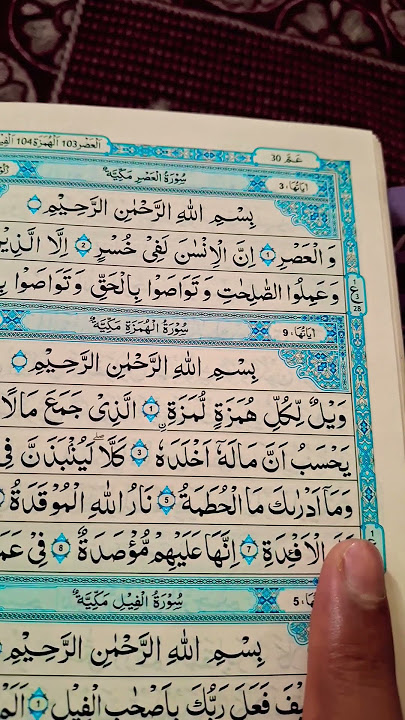 عَمَّ 30
اَلْعَصْر 103 اَلْهُمَزَة 104
اٰيَاتُهَا: 3
سُوْرَةُ الْعَصْرِ مَكِّيَّةٌ
بِسْمِ اللّٰهِ الرَّحْمٰنِ الرَّحِيْمِ
وَالْعَصْرِ ۙ‏ 1 اِنَّ الْاِنْسٰنَ لَفِىْ خُسْرٍ 2 اِلَّا الَّذِيْنَ
وَعَمِلُوا الصّٰلِحٰتِ وَتَوَاصَوْا بِالْحَقِّ وَتَوَاصَوْا
ع
3
28
اٰيَاتُهَا: 9
سُوْرَةُ الْهُمَزَةِ مَكِّيَّةٌ
بِسْمِ اللّٰهِ الرَّحْمٰنِ الرَّحِيْمِ
وَيْلٌ لِّكُلِّ هُمَزَةٍ لُّمَزَةٍ 1 الَّذِىْ جَمَعَ مَالًا
يَحْسَبُ اَنَّ مَالَهٗٓ اَخْلَدَهٗ 3 كَلَّا لَيُنْۢبَذَنَّ فِى
وَمَآ اَدْرٰىكَ مَا الْحُطَمَةُ 5 نَارُ اللّٰهِ الْمُوْقَدَةُ
الْاَفْـِٕدَةِ 7 اِنَّهَا عَلَيْهِمْ مُّؤْصَدَةٌ 8 فِىْ
5
سُوْرَةُ الْفِيْلِ مَكِّيَّةٌ
بِسْمِ اللّٰهِ الرَّحْمٰنِ الرَّحِيْمِ
فَعَلَ رَبُّكَ بِاَصْحٰبِ الْفِيْلِ 1 اَلَمْ